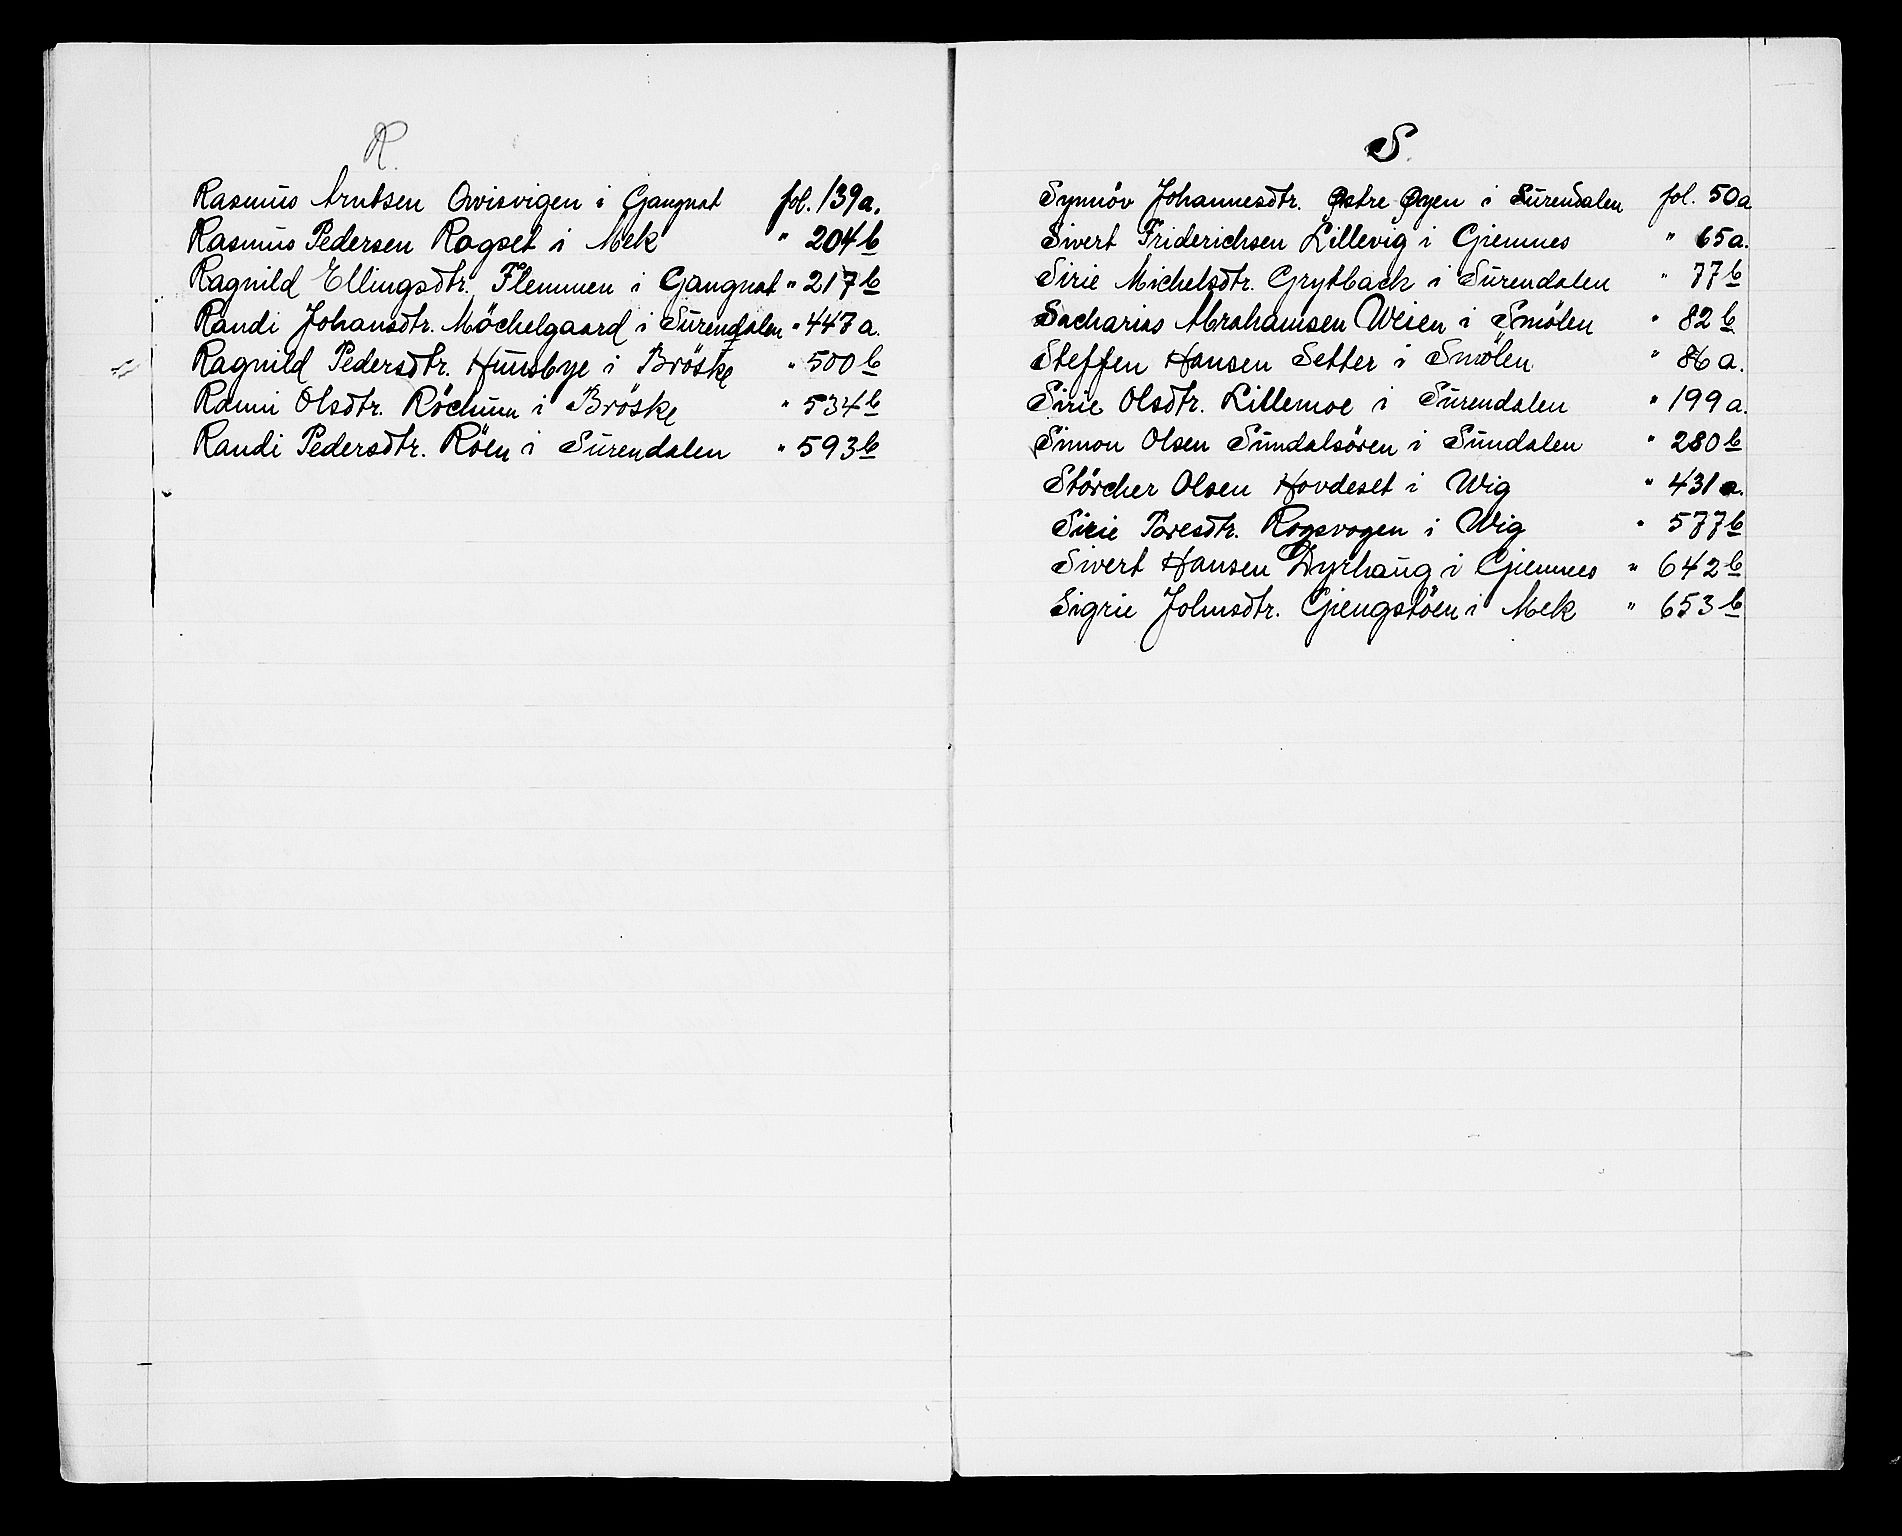 R.
Rasmus Arntsen Qvisvigen i Gangnat fol. 139a.
Rasmus Pedersen Rogset i Mek " 204b
Ragnild Ellingsdtr. Flemmen i Gangnat " 217b
Randi Johansdtr. Möchelgaard i Surendalen " 447a.
Ragnild Pedersdtr. Huusbye i Bröske " 500b
Ranni Olsdtr. Röchum i Bröske " 534b
Randi Pedersdtr. Röen i Surendalen " 593b
S.
Synnöv Johannesdtr. Østre Øyen i Surendalen fol. 50a
Sivert Friderichsen Lillevig i Giemnes " 65a.
Sirie Michelsdtr. Grytback i Surendalen " 77b
Sacharias Abrahamsen Weien i Smölen " 82b
Steffen Hansen Setter i Smölen " 86a.
Sirie Olsdtr. Lillemoe i Surendalen " 199a.
Simon Olsen Sundalsören i Sundalen " 280b
Störcher Olsen Hovdeset i Wig " 431a.
Sirie Paresdtr. Rogsvogen i Wig " 577b
Sivert Hansen Dyrhaug i Giemnes " 642b
Sigrie Johnsdtr. Giengstöen i Mek " 653b